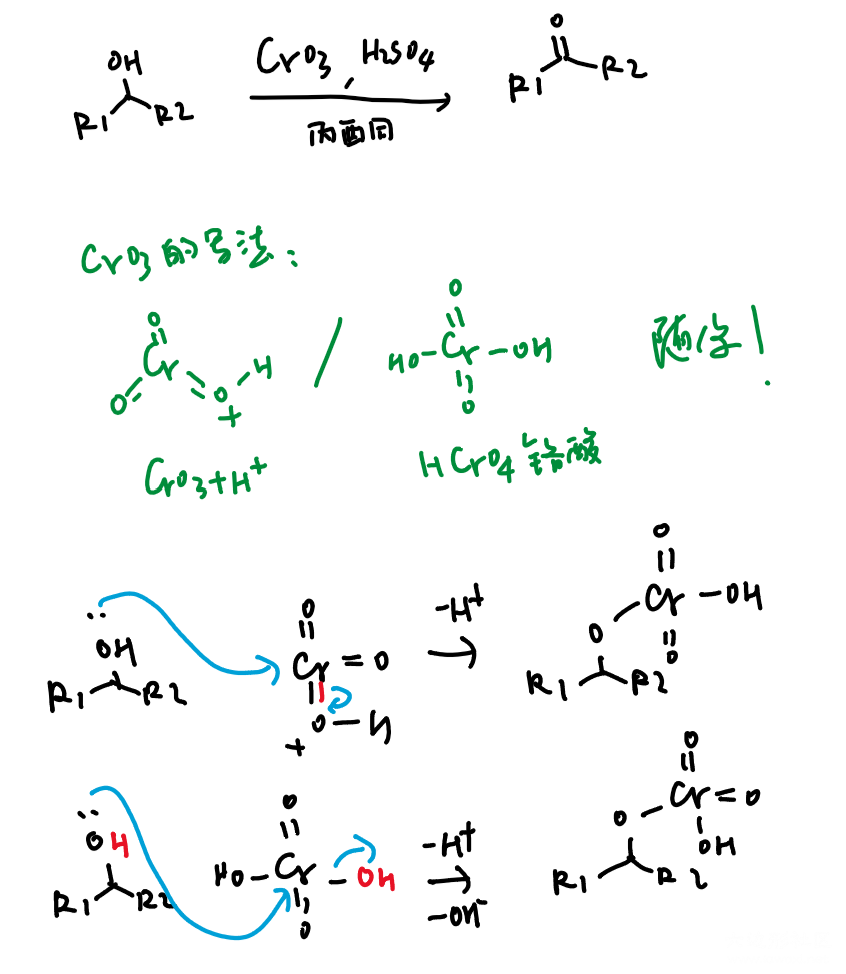 OH
R1 R2
CrO3, H2SO4
丙酮
O
R1 R2
CrO3的写法:
O
Cr
O O H
+
CrO3+H+
/
O
HO-Cr-OH
O
HCrO4 铬酸
!
··
OH
R1 R2
O
Cr=O
O-H
+
-H+
O
Cr-OH
O O
R1 R2
··
OH
R1 R2
O
HO-Cr-OH
O
-H+
-OH-
O
O Cr=O
OH
R1 R2